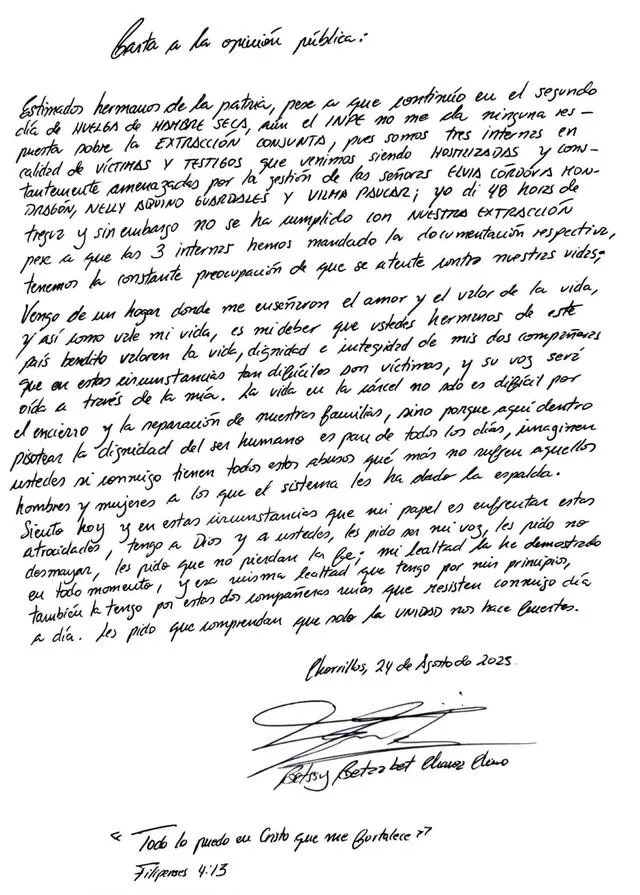 Carta a la opinión pública:
Estimados hermanos de la patria, pese a que continúo en el segundo
día de HUELGA de HAMBRE SECA, aún el INPE no me da ninguna res-
puesta sobre la EXTRACCIÓN CONJUNTA, pues somos tres internas en
calidad de VÍCTIMAS Y TESTIGOS que venimos siendo HOSTILIZADAS y cons-
tantemente amenazadas por la gestión de las señoras ELVIA CÓRDOVA MON-
DRAGÓN, NELLY AQUINO GUARDALES Y VILMA PAUCAR; yo di 48 horas de
tregua y sin embargo no se ha cumplido con NUESTRA EXTRACCIÓN
pese a que las 3 internas hemos mandado la documentación respectiva,
tenemos la constante preocupación de que se atente contra nuestras vidas;
Vengo de un hogar donde me enseñaron el amor y el valor de la vida,
y así como vale mi vida, es mi deber que ustedes hermanos de este
país bendito valoren la vida, dignidad e integridad de mis dos compañeras
que en estas circunstancias tan difíciles son víctimas, y su voz será
oída a través de la mía. La vida en la cárcel no solo es difícil por
el encierro y la separación de nuestras familias, sino porque aquí dentro
pisotear la dignidad del ser humano es pan de todos los días, imaginen
ustedes si conmigo tienen todos estos abusos qué más no sufren aquellos
hombres y mujeres a los que el sistema les ha dado la espalda.
Siento hoy y en estas circunstancias que mi papel es enfrentar estas
atrocidades, tengo a Dios y a ustedes, les pido ser mi voz, les pido no
desmayar, les pido que no pierdan la fe; mi lealtad la he demostrado
en todo momento, y esa misma lealtad que tengo por mis principios,
también la tengo por estas dos compañeras mías que resisten conmigo día
a día. Les pido que comprendan que solo la UNIDAD nos hace fuertes.
Chorrillos, 24 de Agosto de 2025.
Betssy Betzabet Chavez Chino
"Todo lo puedo en Cristo que me fortalece"
Filipenses 4:13